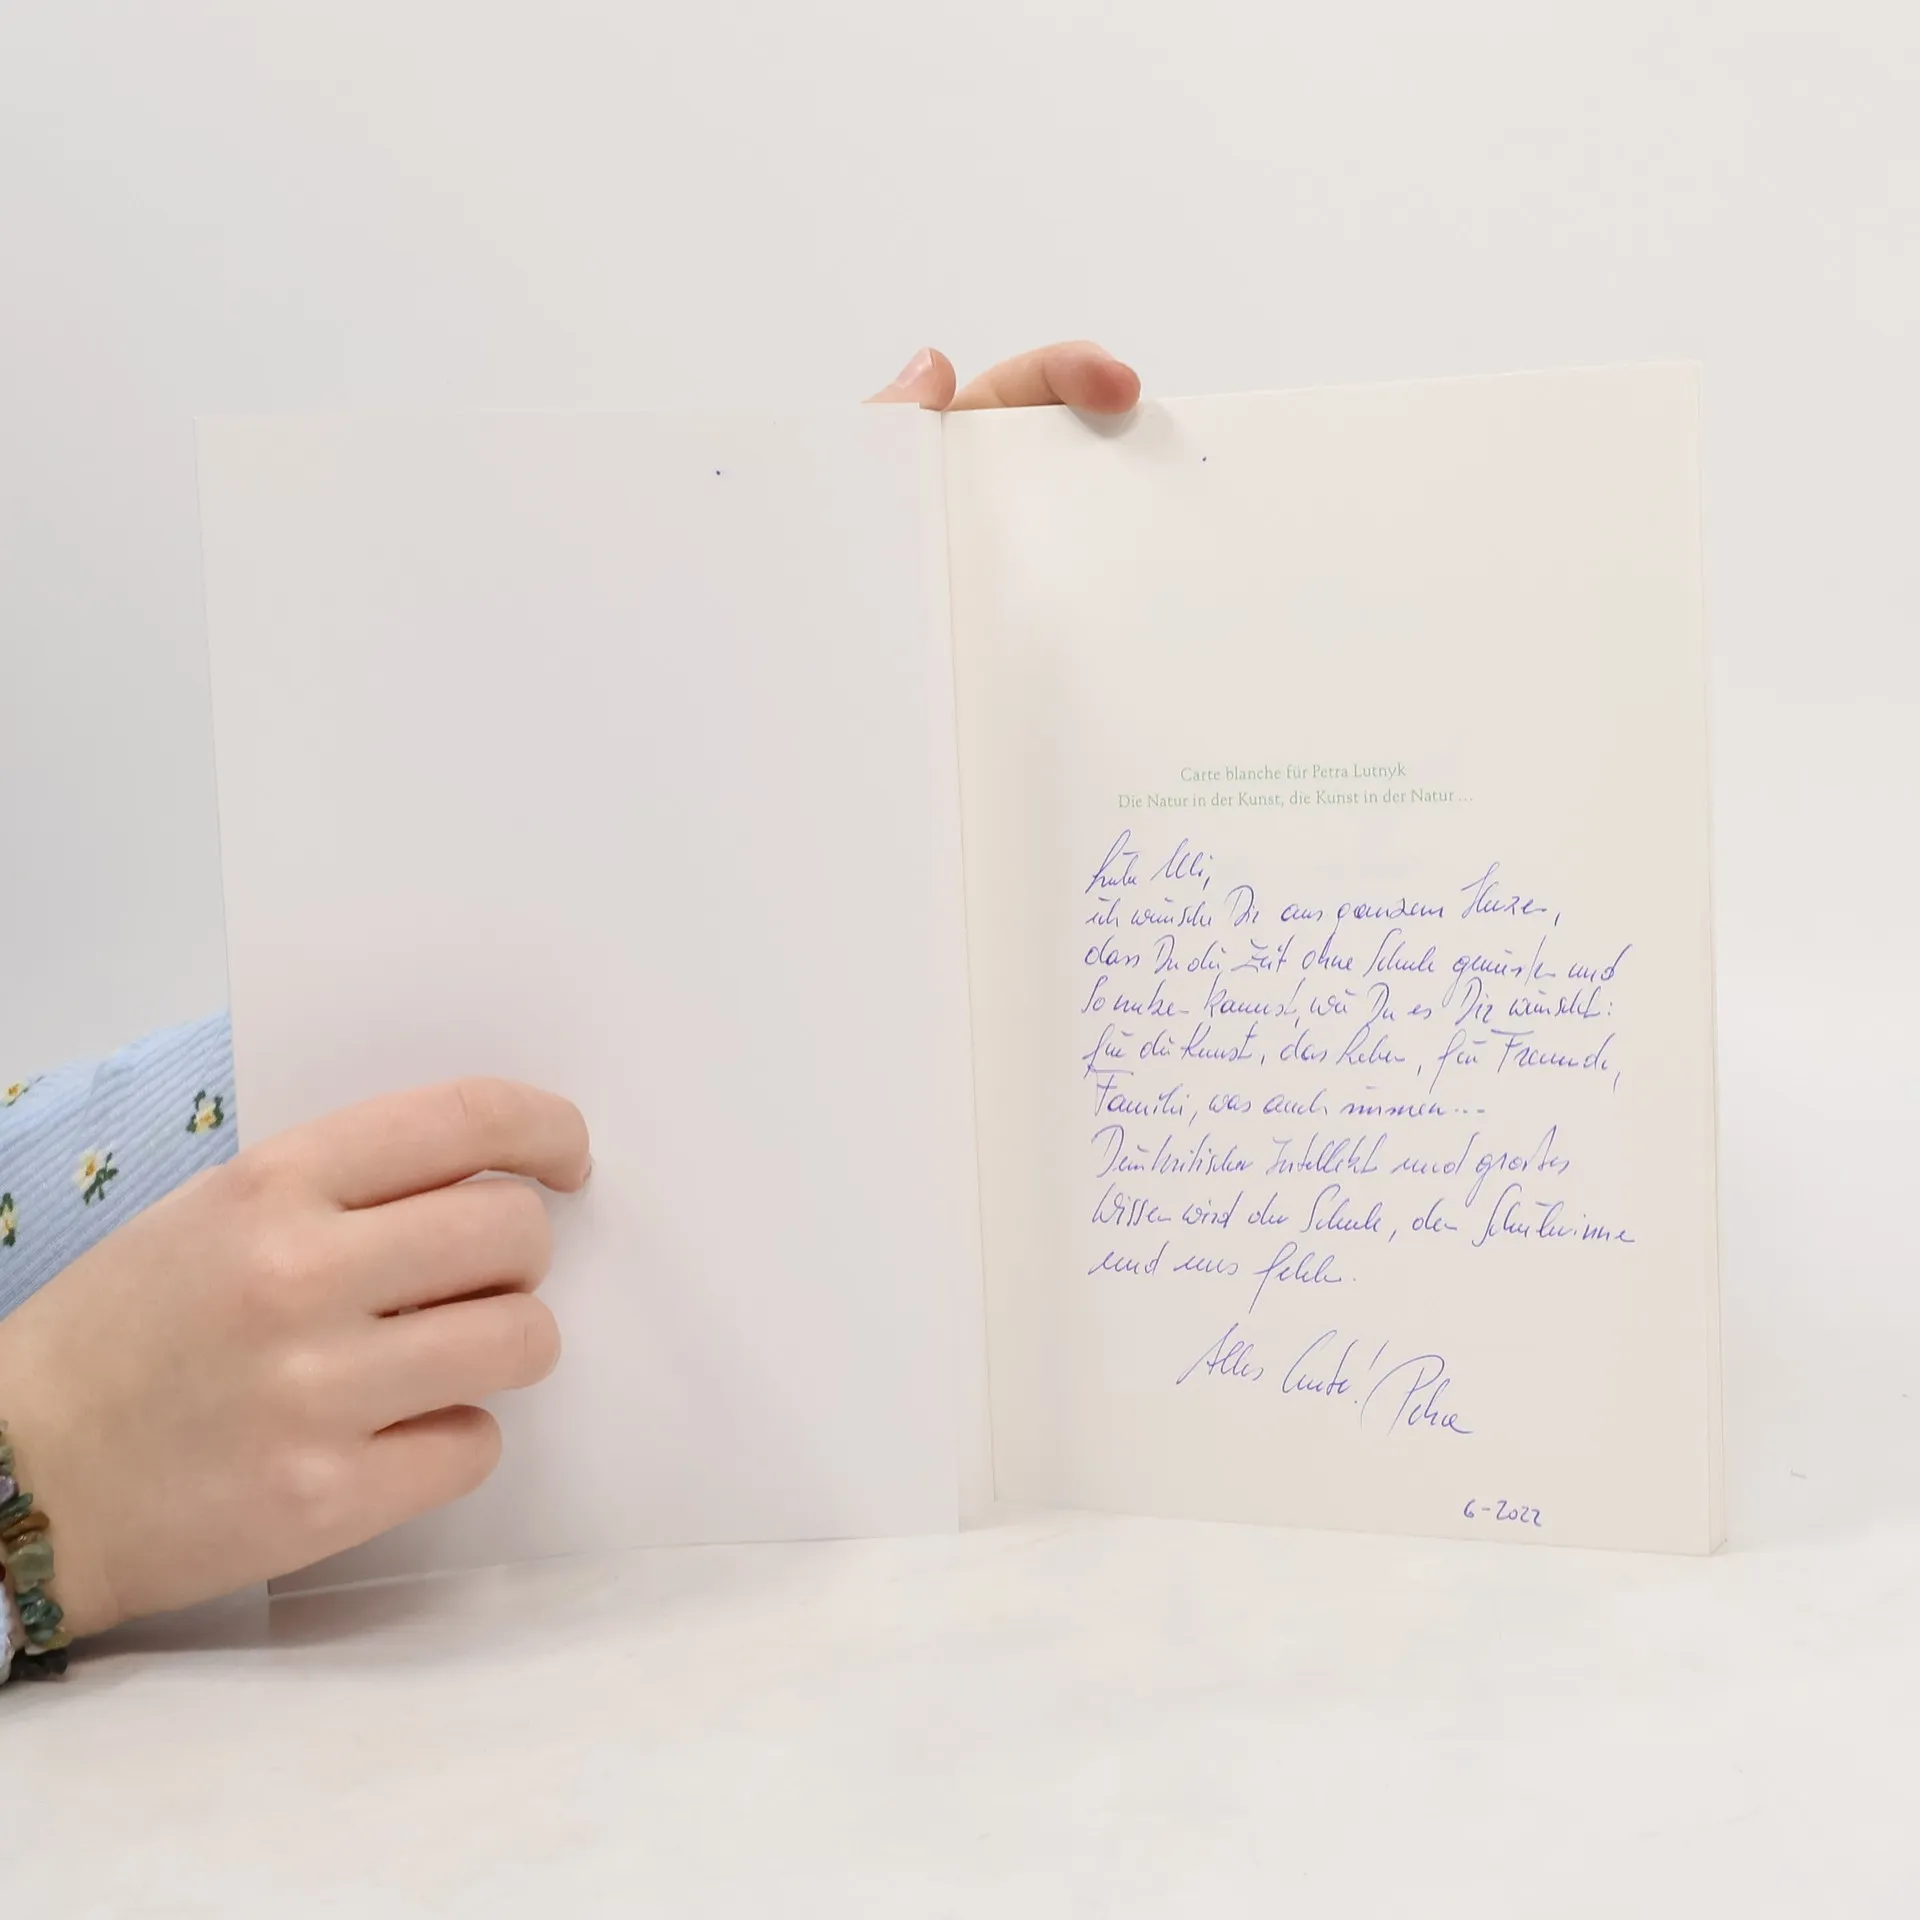 Carte blanche für Petra Lutnyk
Die Natur in der Kunst, die Kunst in der Natur ...
Liebe Uli,
ich wünsche Dir aus ganzem Herzen,
dass Du die Zeit ohne Schule genießen und
so nutzen kannst, wie Du es Dir wünschst:
für die Kunst, das Leben, für Freunde,
Familie, was auch immer...
Dein kritischer Intellekt und großes
Wissen wird der Schule, den Schülerinnen
und uns fehlen.
Alles Gute! Petra
6-2022